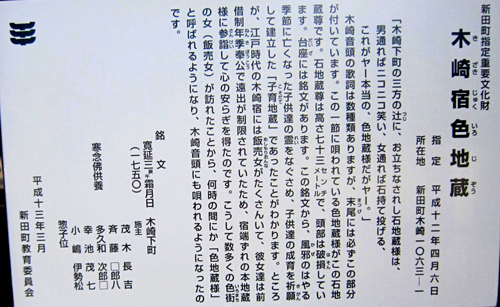 新田町指定重要文化財
木崎宿色地蔵
指定 平成十二年四月六日
所在地 新田町木崎一〇六三ー一
「木崎下町の三方の辻に、お立ちなされし石地蔵様は、
男通ればニコニコ笑い、女通れば石持て投げる、
これがヤー本当の、色地蔵様だがヤー。」
木崎音頭の歌詞は数種類ありますが、末尾には必ずこの部分
が付いています。この一節に唄われている色地蔵様がこの石地
蔵尊です。石地蔵尊は高さ七十三センチメートルで、頭部は破損してい
ます。台座には銘文があります。この銘文から、風邪のはやる
季節に亡くなった子供達の霊をなぐさめ、子供達の成育を祈願
して建立した「子育地蔵」であったことがわかります。ところ
が、江戸時代の木崎宿には飯売女がたくさんいて、彼女達は前
借制年季奉公で遠出が制限されていたため、宿端ずれの本地蔵
様に参詣して心の安らぎを得たのです。こうして数多くの色街
の女（飯売女）が訪れたことから、何時の間にか「色地蔵様」
と呼ばれるようになり、木崎音頭にも唄われるようになったの
です。
銘文
寛延三 霜月日 木崎下町
（一七五〇） 施主 茂木長吉
斉藤□郎八
多久和次郎□
寒念佛供養 幸池茂七
小嶋伊勢松
惣子位
平成十三年三月
新田町教育委員会